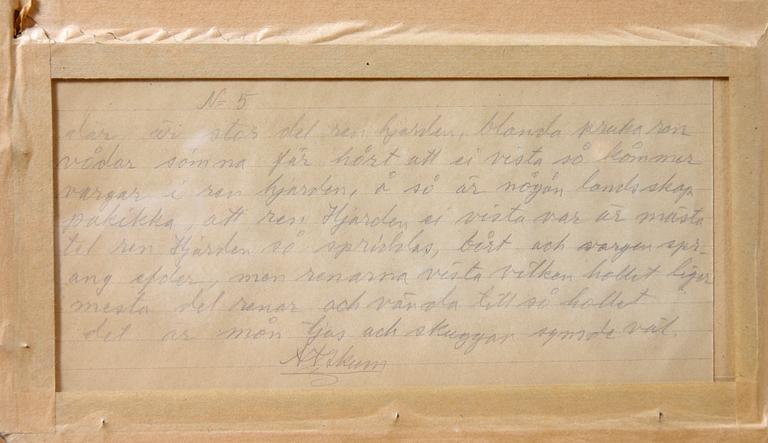 N= 5
dar äri stor del ren hjorden, blanda pruka ren
vådar sömna får hårt att ei vista så kåmmer
vargar i ren hjorden, å så är någån landsskap
påkikka, att ren Hjorden ei vista var är mästa
tel ren Hjorden så spriddas, bårt och vargen spr-
ang efter, men renarna vista vilken hollet liger
mesta del renar och vända titt så hollet
det är mån ljas och skuggar symde väl.
N N Skum